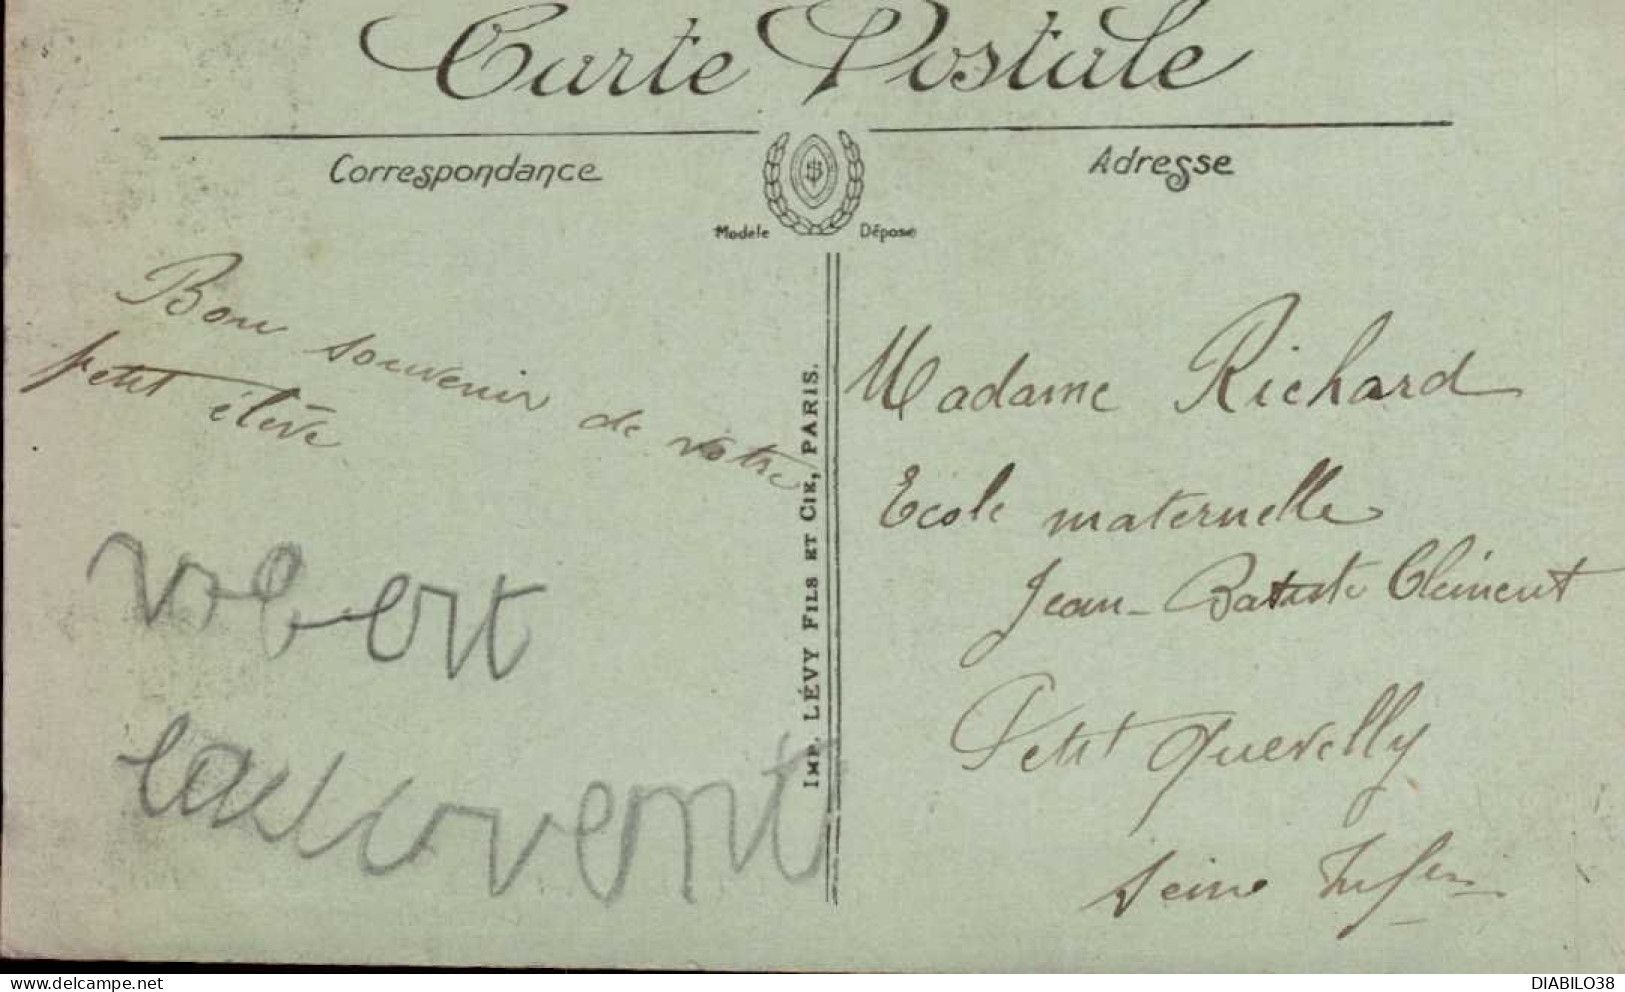 Carte Postale
Correspondance
Adresse
Modele Déposé
Bon souvenir de votre
petit élève
robert
IMP. LÉVY FILS ET CIE, PARIS.
Madame Richard
Ecole maternelle
Jean-Batiste Clément
Petit Quevelly
Seine Infer
delcampe.net
DIABILO38